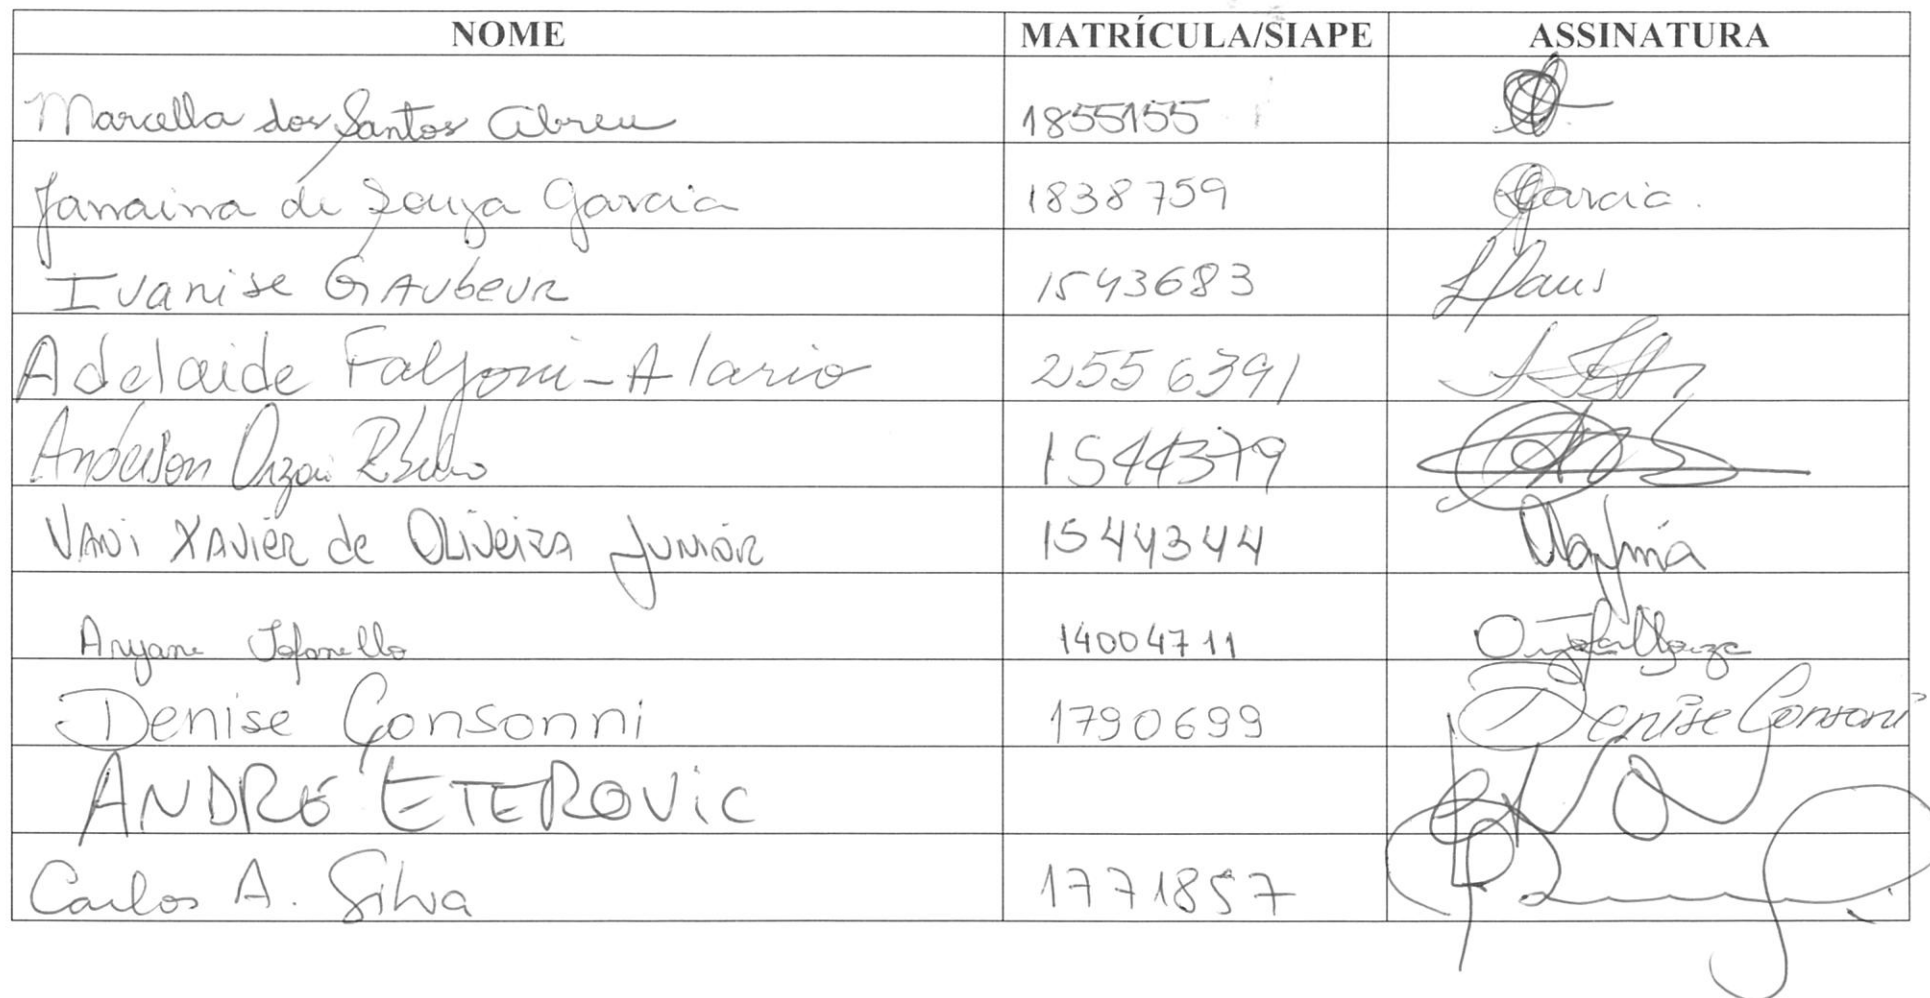 NOME MATRÍCULA/SIAPE ASSINATURA
Marcella dos Santos Abreu 1855155
Janaina de Souza Garcia 1838759 Garcia.
Ivanise GAubeuR 1543683
Adelaide Faljoni-Alario 2556391
Anderson Orzari Ribeiro 1544379
VANi XAVieR de OLiVeiRA JUNiOR 1544344
Aryane Tofanello 14004711
Denise Consonni 1790699 Denise Consoni
ANDRÉ ETEROViC
Carlos A. Silva 1771857